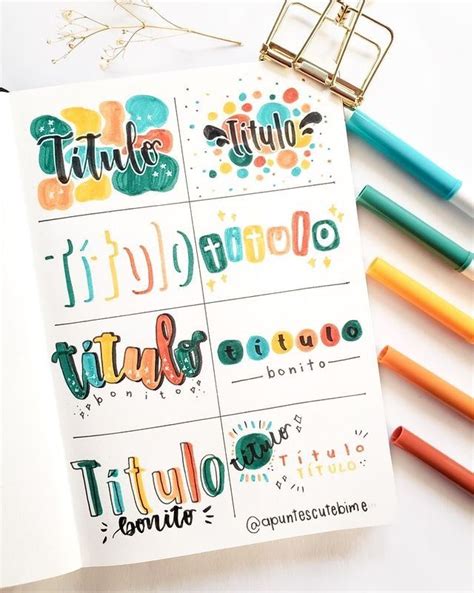 Título
Título
Título
título
título
bonito
título
bonito
Título
bonito
título
Título
TÍTULO
@apuntescutebime